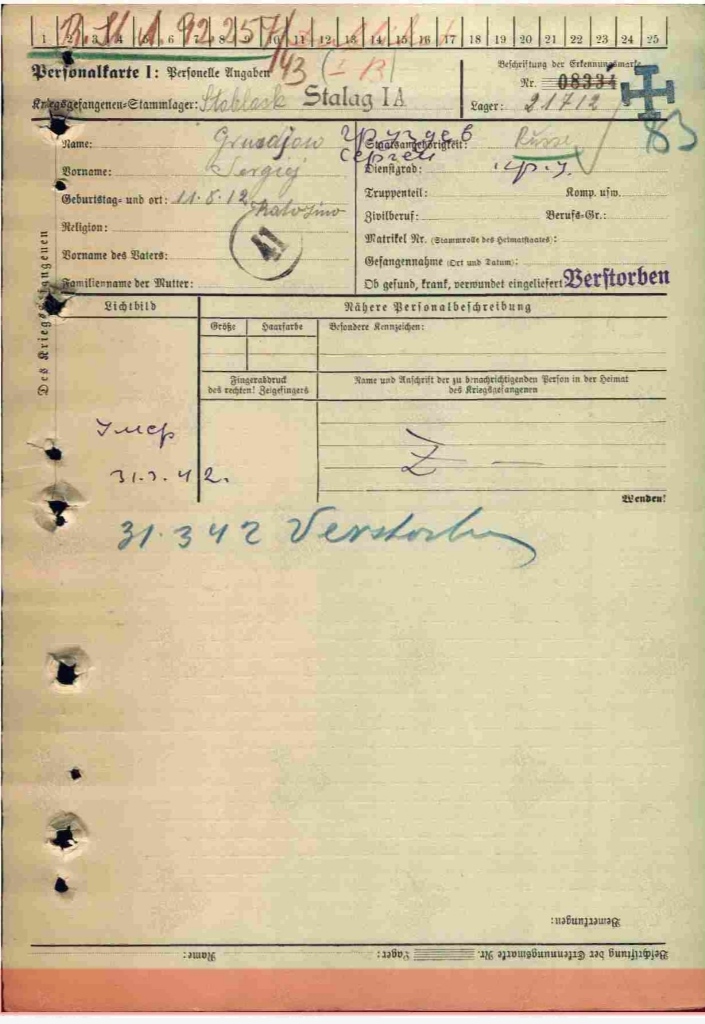 1 2 3 4 5 6 7 8 9 10 11 12 13 14 15 16 17 18 19 20 21 22 23 24 25
143
Personalkarte I: Personelle Angaben
Beschriftung der Erkennungsmarke
Nr. 08334
Kriegsgefangenen-Stammlager: Stablack Stalag IA
Lager: 21712
83
Des Kriegsgefangenen
Name: Grusdjow
Груздев
Сергей
Vorname: Sergiej
Geburtstag- und ort: 11.8.12
41
Religion:
Vorname des Vaters:
Familienname der Mutter:
Staatsangehörigkeit: Russe
Dienstgrad:
Truppenteil: Komp. usw.
Zivilberuf: Berufs-Gr.:
Matrikel Nr. (Stammrolle des Heimatstaates):
Gefangennahme (Ort und Datum):
Ob gesund, krank, verwundet eingeliefert: Verstorben
Lichtbild
Nähere Personalbeschreibung
Größe Haarfarbe Besondere Kennzeichen:
Fingerabdruck
des rechten! Zeigefingers
Name und Anschrift der zu benachrichtigenden Person in der Heimat
des Kriegsgefangenen
Умер
31.3.42.
Z —
Wenden!
31.3 42 Verstorben
Bemerkungen:
Beschriftung der Erkennungsmarke Nr. Lager: Name: